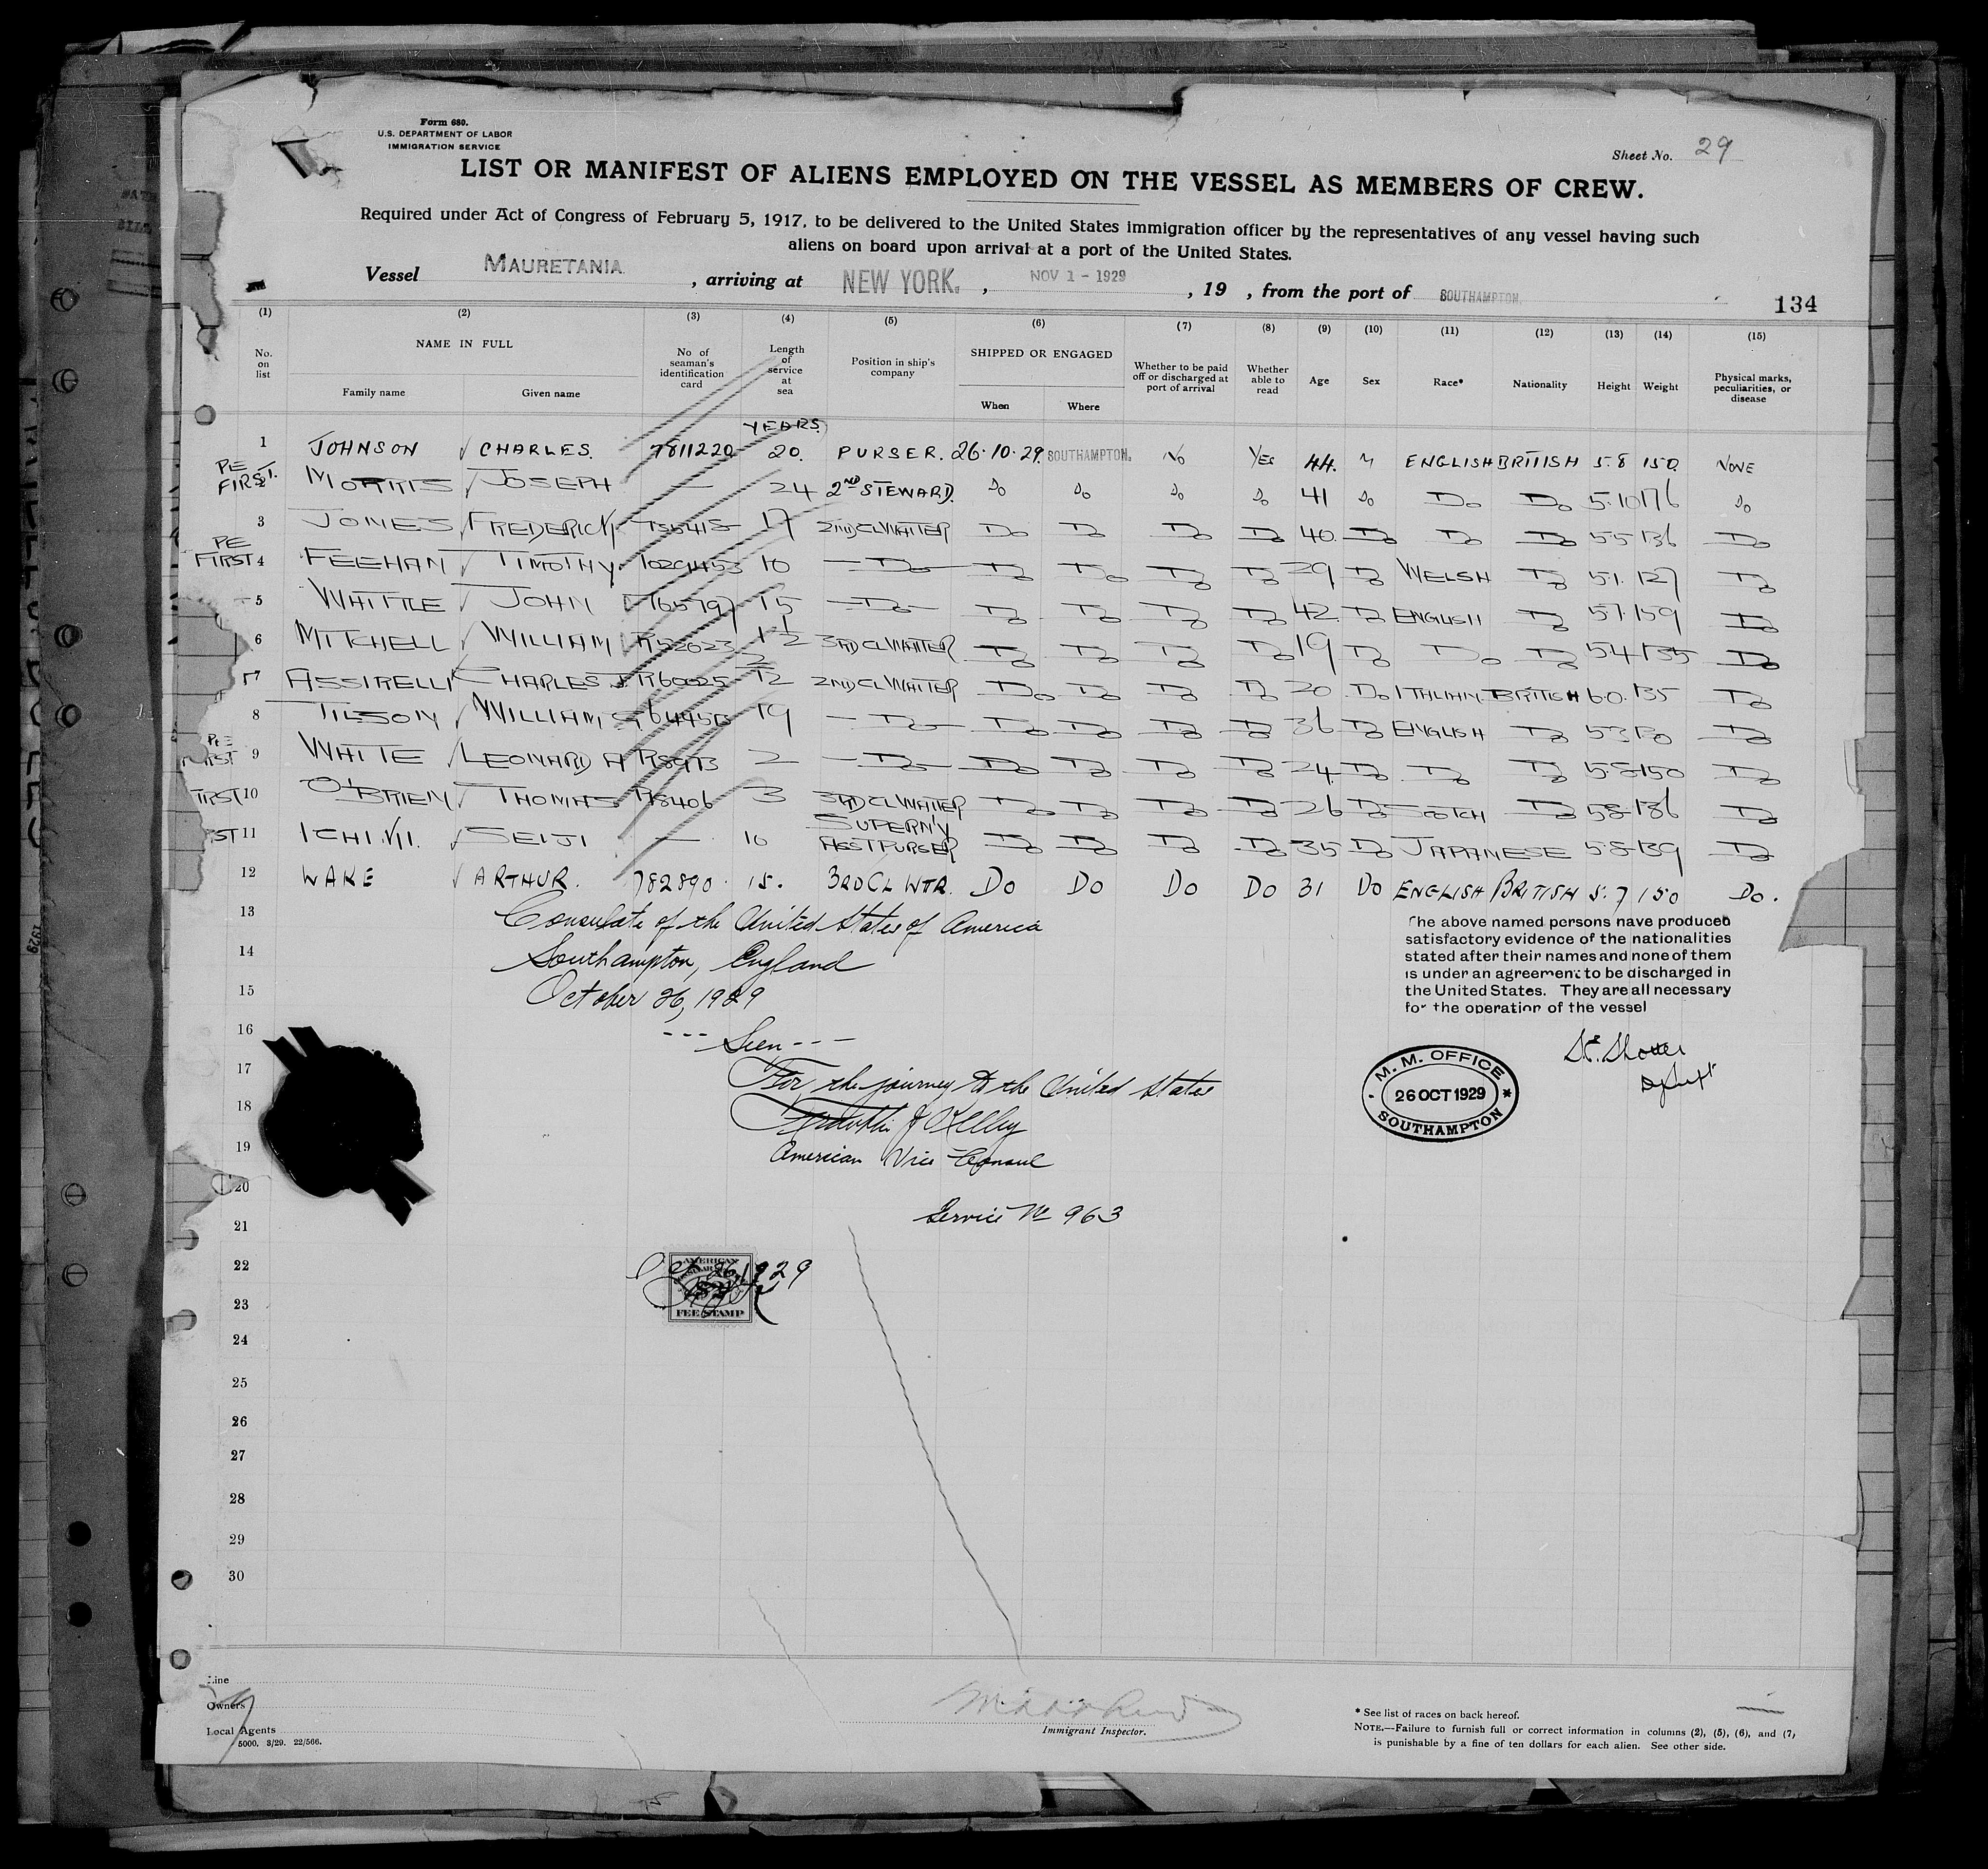 Form 680.
U.S. DEPARTMENT OF LABOR
IMMIGRATION SERVICE
Sheet No. 29
LIST OR MANIFEST OF ALIENS EMPLOYED ON THE VESSEL AS MEMBERS OF CREW.
Required under Act of Congress of February 5, 1917, to be delivered to the United States immigration officer by the representatives of any vessel having such
aliens on board upon arrival at a port of the United States.
Vessel MAURETANIA, arriving at NEW YORK, NOV 1 - 1929, 19 , from the port of SOUTHAMPTON.
134
(1) (2) (3) (4) (5) (6) (7) (8) (9) (10) (11) (12) (13) (14) (15)
No. on list NAME IN FULL Family name Given name No of seaman's identification card Length of service at sea Position in ship's company SHIPPED OR ENGAGED When Where Whether to be paid off or discharged at port of arrival Whether able to read Age Sex Race* Nationality Height Weight Physical marks, peculiarities, or disease
YEARS.
1 JOHNSON CHARLES. 7811220 20. PURSER. 26.10.29. SOUTHAMPTON. No Yes 44. M ENGLISH BRITISH 5.8 150 NONE
PE FIRST. MORRIS JOSEPH — 24 2ND STEWARD. Do Do Do Do 41 Do Do Do 5.10 176 Do
3 JONES FREDERICK 17 2ND CL WAITER Do Do Do Do 40 Do Do Do 5.5 136 Do
PE FIRST 4 FEEHAN TIMOTHY. 10 Do Do Do Do Do 29 Do WELSH Do 5.1. 127 Do
5 WHITTLE JOHN 15 Do Do Do Do Do 42 Do ENGLISH Do 5.7. 159 Do
6 MITCHELL WILLIAM R52023 3RD CL WAITER Do Do Do Do 19 Do Do Do 5.4 135 Do
7 ASSIRELLI CHARLES J. R60025 2ND CL WAITER Do Do Do Do 20 Do ITALIAN BRITISH 6.0. 135 Do
8 TILSON WILLIAM G 19 Do Do Do Do Do 36 Do ENGLISH Do 5.3 130 Do
PE FIRST 9 WHITE LEONARD A 2 Do Do Do Do Do 24. Do Do Do 5.8 150 Do
FIRST 10 O'BRIEN THOMAS 3 3RD CL WAITER Do Do Do Do 26 Do SCOTCH Do 5.8 136 Do
ST 11 ICHIJI. SEIJI — 10 SUPERN'Y ASST PURSER Do Do Do Do 35 Do JAPANESE 5.8 139 Do
12 WAKE ARTHUR. 782890. 15. 3RD CL WTR. Do Do Do Do 31 Do ENGLISH BRITISH 5.7 150 Do.
13 Consulate of the United States of America
14 Southampton, England
15 October 26, 1929
16 --- Seen ---
17 For the journey to the United States
18 J Kelley
19 American Vice Consul
20
21 Service No 963
22 Oct 26, 1929
AMERICAN
23 FEE STAMP
24
25
26
27
28
29
30
The above named persons have produced
satisfactory evidence of the nationalities
stated after their names and none of them
is under an agreement to be discharged in
the United States. They are all necessary
for the operation of the vessel
M. M. OFFICE
26 OCT 1929
SOUTHAMPTON
Line
Owners
Local Agents
5000. 3/29. 22/566.
Immigrant Inspector.
* See list of races on back hereof.
NOTE.—Failure to furnish full or correct information in columns (2), (5), (6), and (7,
is punishable by a fine of ten dollars for each alien. See other side.